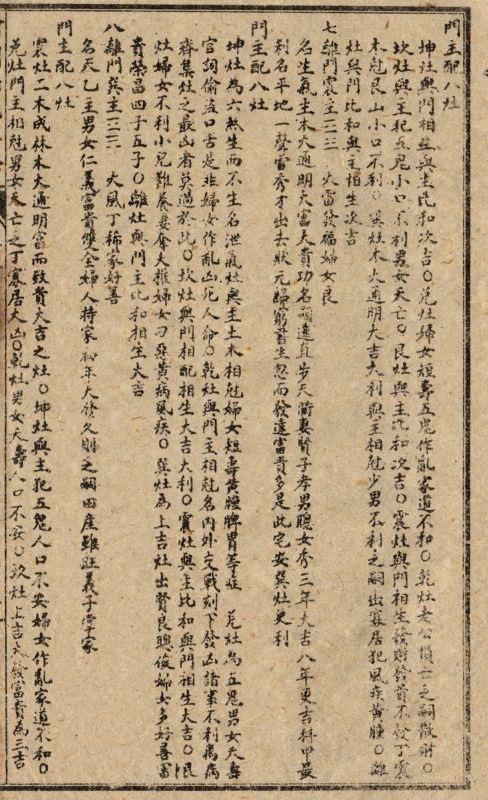 門主配八灶
坤灶與門相生與主比和次吉○兌灶婦女短壽五鬼作亂家道不和○乾灶老公傷亡乏嗣散財○
坎灶與主犯五鬼小口不利男女夭亡○艮灶與主比和次吉○震灶與門相生發財發貴不發丁震
木尅艮山小口不利○巽灶木火通明大吉大利與主相尅少男不利乏嗣出寡居犯風疾黃腫○離
灶與門比和與主相生次吉
七離門震主三三火雷發福婦女良
名生氣主木火通明大富大貴功名顯達直步天衢妻賢子孝男聰女秀三年大吉八年更吉科甲最
利名平地一聲雷秀才出去狀元歸窮書生忽而發達富貴多是此宅安巽灶更利
門主配八灶
坤灶為六煞生而不生名洩氣灶與主土木相尅婦女短壽黃腫脾胃等症 兌灶為五鬼男女夭壽
官詞偷盜口舌是非婦女作亂凶死人命○乾灶與門主相尅名內外交戰刻下發凶諸事不利瘑病
齊集灶之最凶者莫過於此○坎灶與門相配相生大吉大利○震灶與主比和與門相生大吉○艮
灶婦女不利小兒難養妻奪夫權婦女刁惡黃病風疾○巽灶為上吉灶出賢良聰俊婦女多好善富
貴榮昌四子五子○離灶與門主比和相生大吉
八離門巽主三三 火風丁稀家好善
名天乙主男女仁義富貴雙全婦人持家初年大發久則乏嗣田產雖旺義子掌家
門主配八灶
震灶二木成林木火通明富而致貴大吉之灶○坤灶與主犯五鬼人口不安婦女作亂家道不和○
兌灶門主相尅男女夭亡乏丁寡居大凶○乾灶男女夭壽人口不安○坎灶上吉大發富貴為三吉